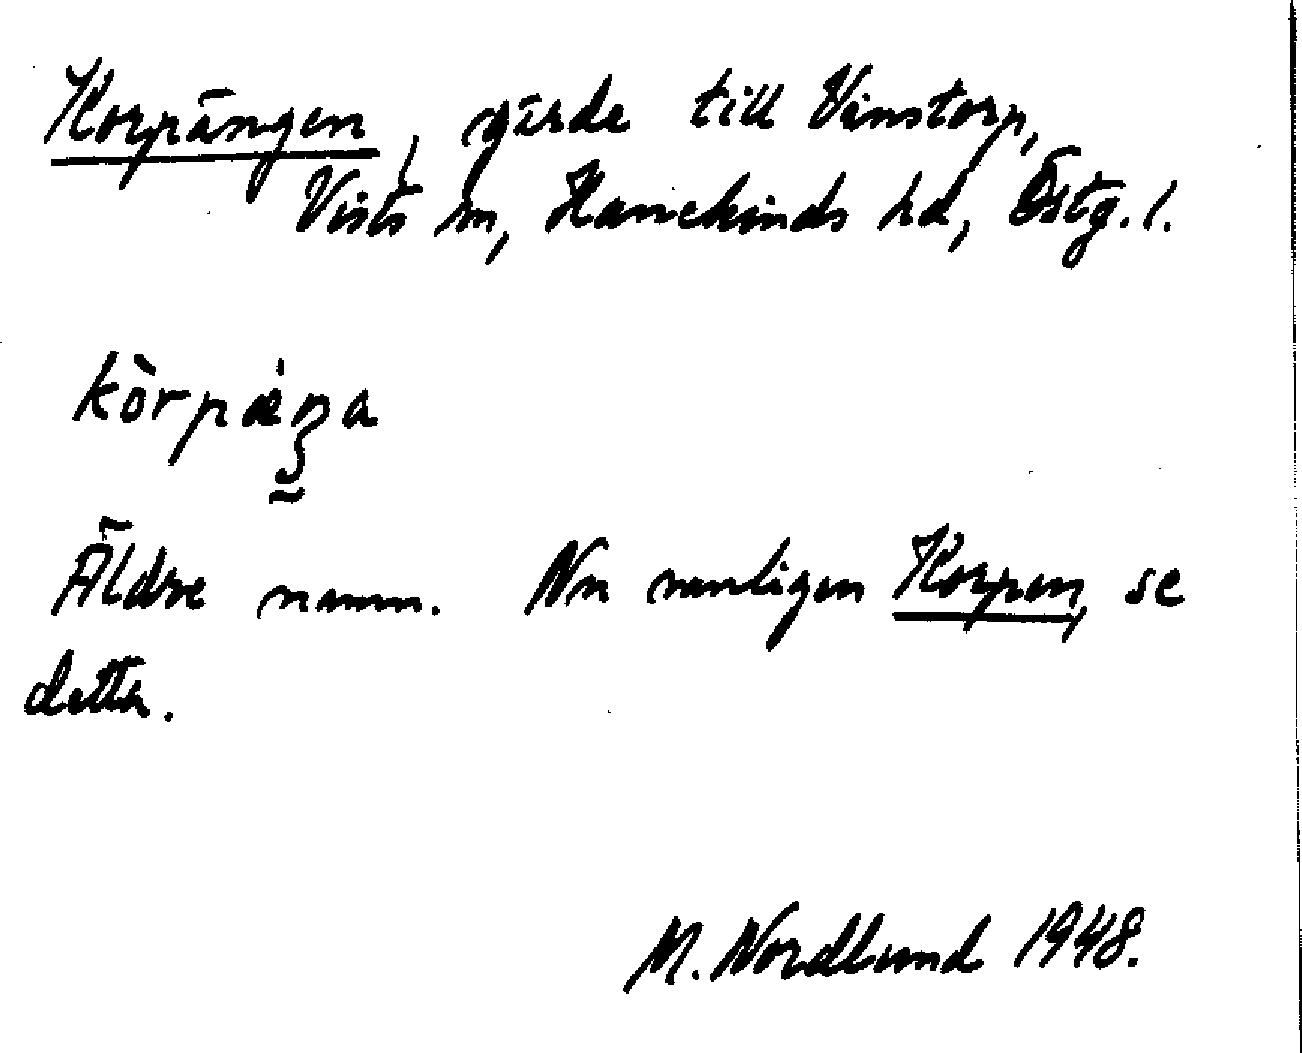 Korpängen, gärde till Vinstorp,
Vists sn, Hanekinds hd, Östg. l.
kòrpæ̀ŋa
Äldre namn. Nu vanligen Korpen, se
detta.
M. Nordlund 1948.